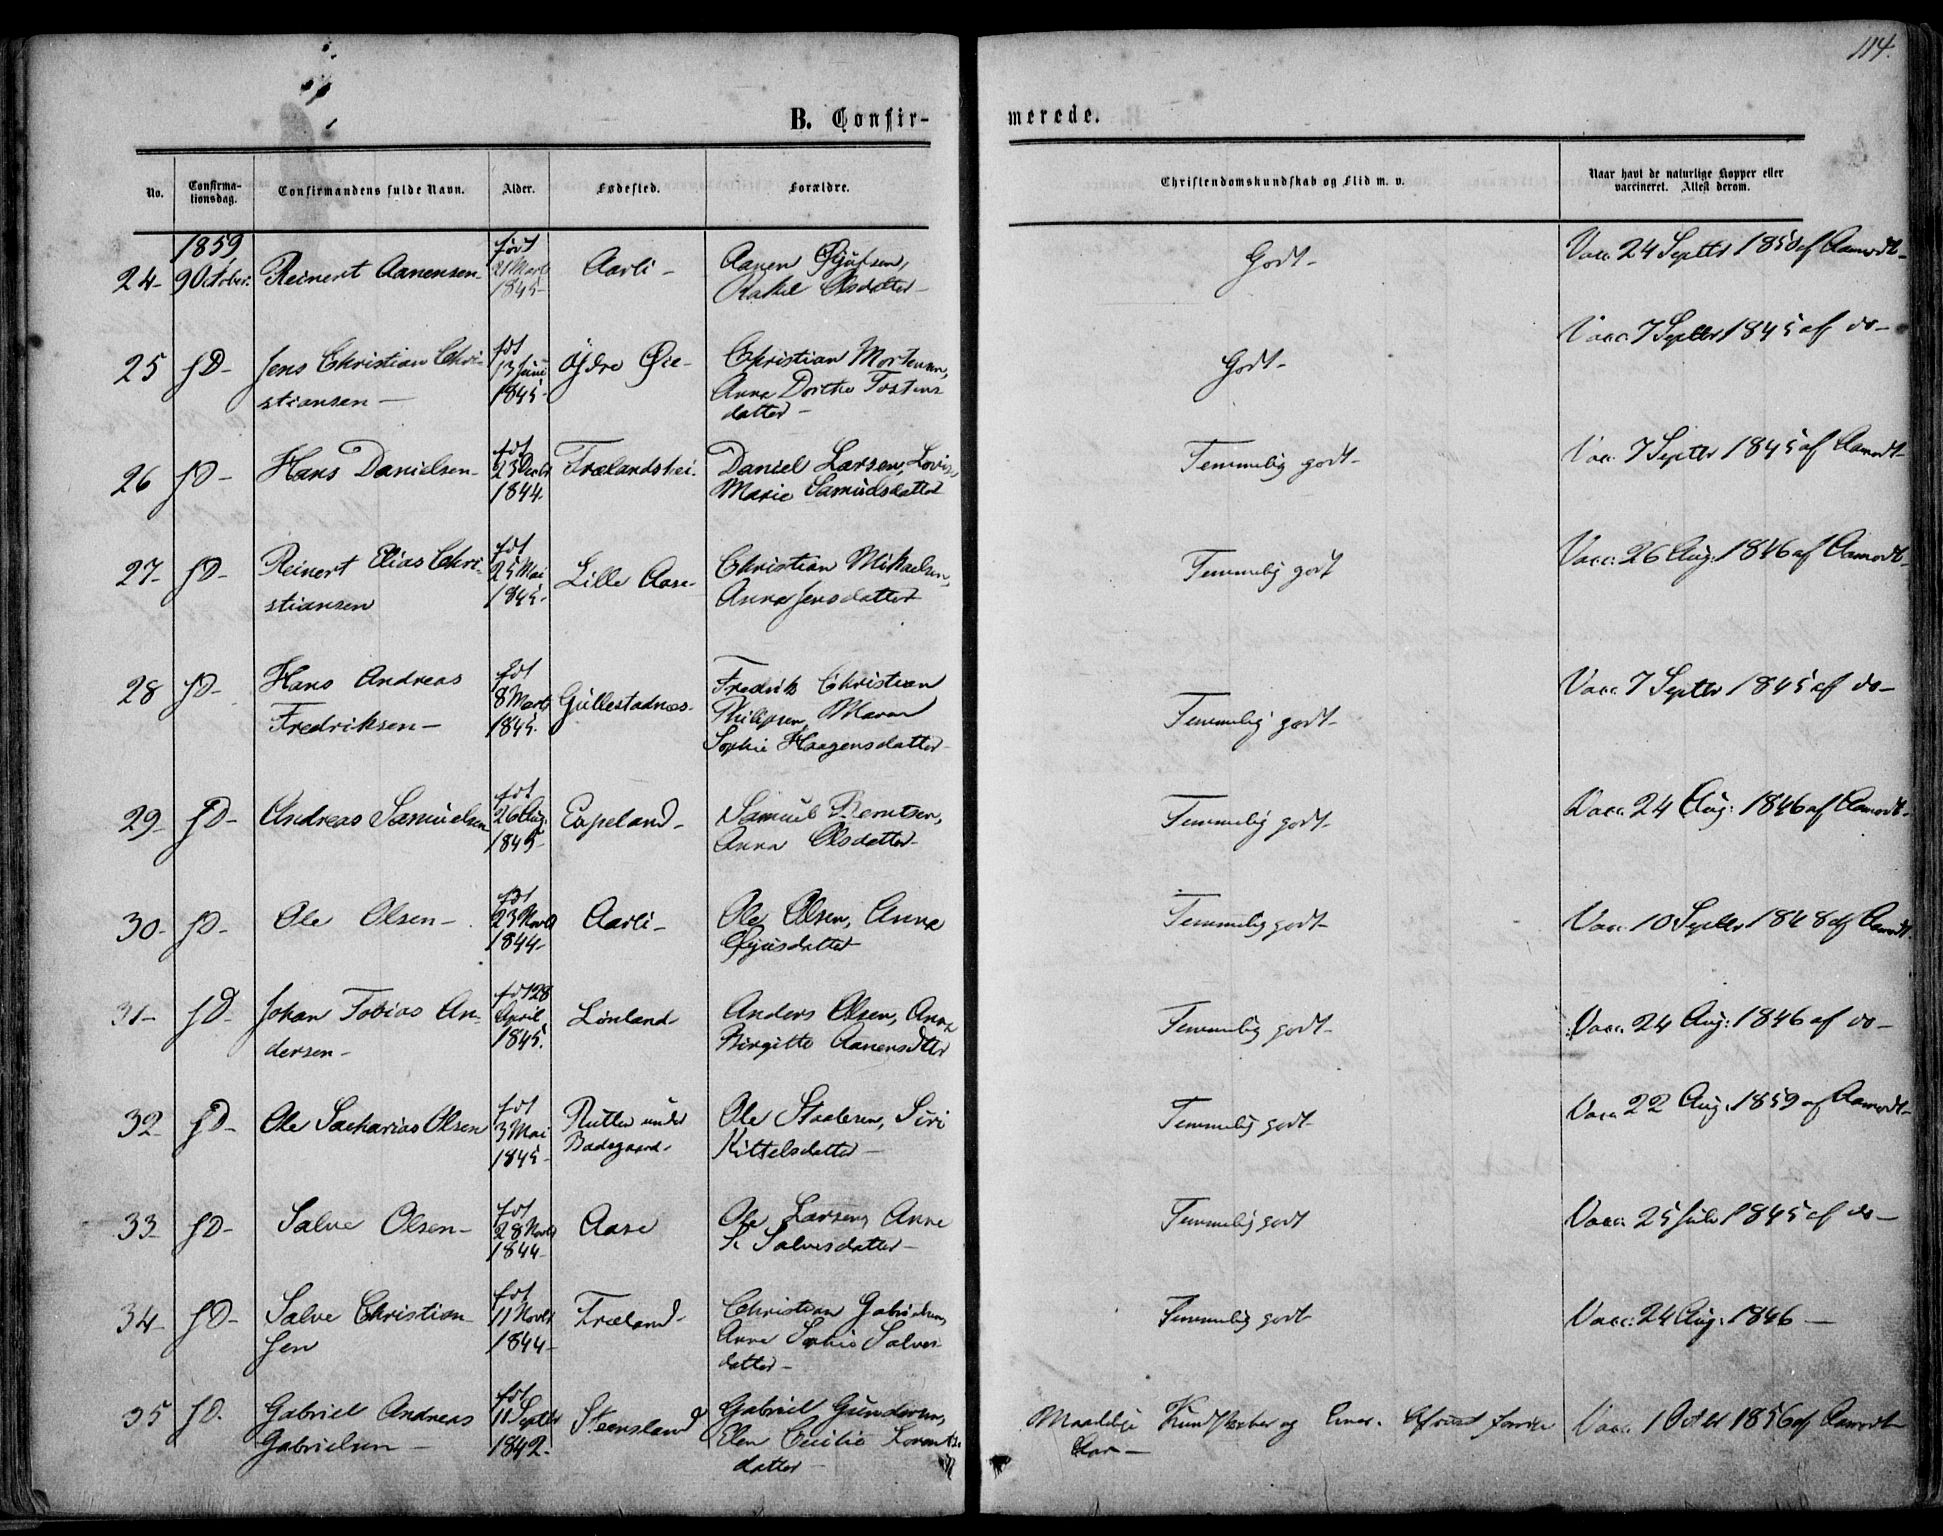 114.
B. Confir-
merede.
No.
Confirma-
tionsdag.
Confirmandens fulde Navn.
Alder.
Fødested.
Forældre.
Christendomskundskab og Flid m. v.
Naar havt de naturlige Kopper eller
vaccineret. Attest derom.
1859,
24- 9 October: Reinert Aanensen- født 21 Marts 1845- Aarli- Aanen
Rakel Olsdatter- Godt- Vacc. 24 Septbr 1850 af Aamodt-
25 JD- Jens Christian Chri-
stiansen- født 13 Juni 1845- Øie- Christian Mortensen,
Anna Dorthe Tostens
datter- Godt- Vacc. 7 Septbr 1845 af do-
26 JD- Hans Danielsen- født 23 Decbr 1844. Frælandshei. Daniel Larsen,
Marie Samuelsdatter Temmelig godt- Vacc. 7 Septbr 1845 af Aamodt-
27- JD- Reinert Elias Chri-
stiansen født 25 Mai 1845- Lille Aase- Christian Mikaelsen,
Anna Jensdatter Temmelig godt Vacc. 26 Aug: 1846 af Aamodt-
28 JD- Hans Andreas
Fredriksen- født 8 Marts 1845. Gullestadnæs- Fredrik Christian
Philipsen, Maren
Sophie Haagensdatter- Temmelig godt- Vacc. 7 Septbr 1845 af do-
29- JD- Andreas Samuelsen født 26 Aug: 1845- Eapeland- Samuel Berntsen,
Anna Olsdatter- Temmelig godt- Vacc. 24 Aug: 1846 af Aamodt-
30- JD- Ole Olsen- født 23 Novbr 1844- Aarli- Ole Olsen, Anna
Temmelig godt- Vacc. 10 Septbr 1848 af Aamodt.
31- JD- Johan Tobias An-
dersen- født 28 April 1845. Lønland- Anders Olsen, Anna
Birgitte Aanensdtter Temmelig godt- Vacc. 24 Aug: 1846 af do-
32- JD- Ole Sacharias Olsen født 3 Mai 1845- under
Ole Staalesen, Siri
Kittelsdatter- Temmelig godt- Vacc. 22 Aug: 1859 af Aamodt-
33- JD- Salve Olsen- født 28 Novbr 1844- Aase Ole Larsen, Anne
Salvesdatter- Temmelig godt Vacc. 25 Juli 1845 af do-
34- JD- Salve Christian-
sen født 11 Novbr 1844- Fræland- Christian Gabrielsen,
Anne Sophie Salves-
datter- Temmelig godt Vacc: 24 Aug: 1846-
35 JD. Gabriel Andreas
Gabrielsen- født 11 Septbr 1842- Steensland Gabriel Gundersen,
Elen Cecilie Lorents-
datter- Maadelige Kundskaber og
Vacc. 1 Octbr 1856 af Aamodt-